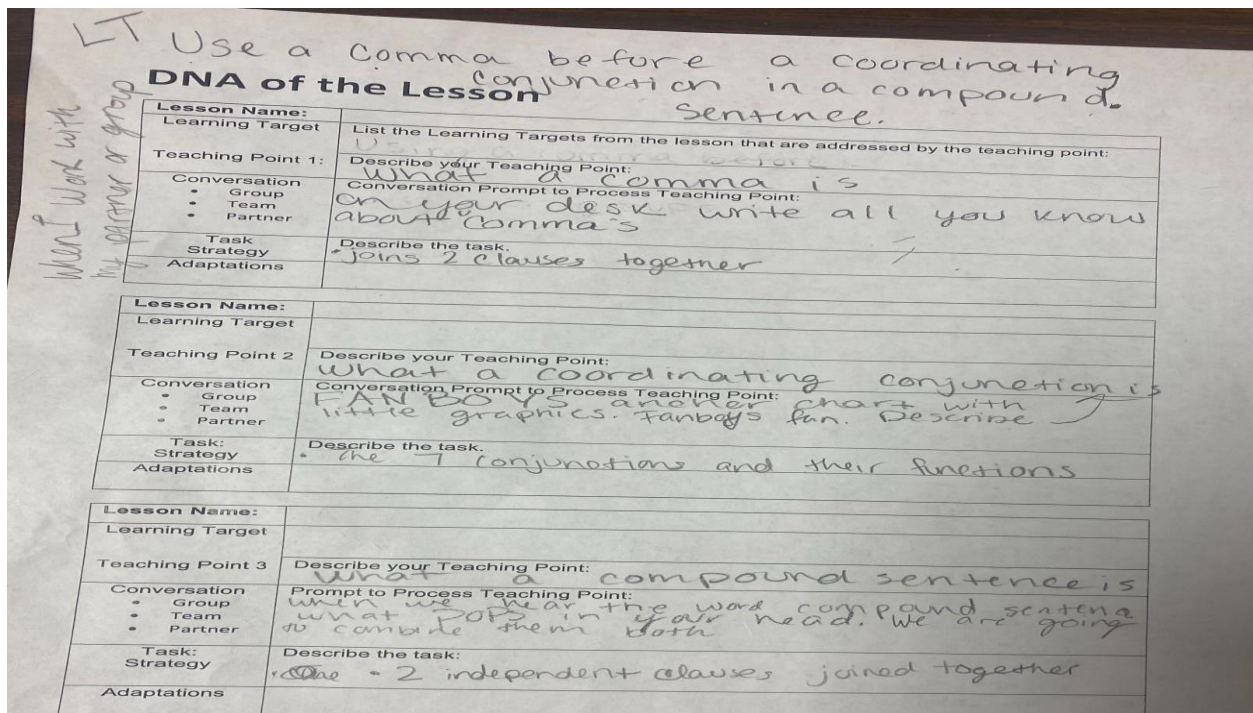 LT Use a comma before a coordinating
conjunction in a compound.
sentence.
When I work with
my partner or group
DNA of the Lesson
Lesson Name:
Learning Target
List the Learning Targets from the lesson that are addressed by the teaching point:
Using a comma before
Teaching Point 1:
Describe your Teaching Point:
what a comma is
Conversation
• Group
• Team
• Partner
Conversation Prompt to Process Teaching Point:
on your desk write all you know
about comma's
Task
Strategy
Describe the task.
• joins 2 clauses together
Adaptations
Lesson Name:
Learning Target
Teaching Point 2
Describe your Teaching Point:
what a coordinating conjunction is
Conversation
• Group
• Team
• Partner
Conversation Prompt to Process Teaching Point:
FANBOYS anchor chart with
little graphics. Fanboys fan. Describe
Task:
Strategy
Describe the task.
• the 7 conjunctions and their functions
Adaptations
Lesson Name:
Learning Target
Teaching Point 3
Describe your Teaching Point:
what a compound sentence is
Conversation
• Group
• Team
• Partner
Prompt to Process Teaching Point:
when we hear the word compound sentence
what POPS in your head. We are going
to combine them both
Task:
Strategy
Describe the task:
• 2 independent clauses joined together
Adaptations